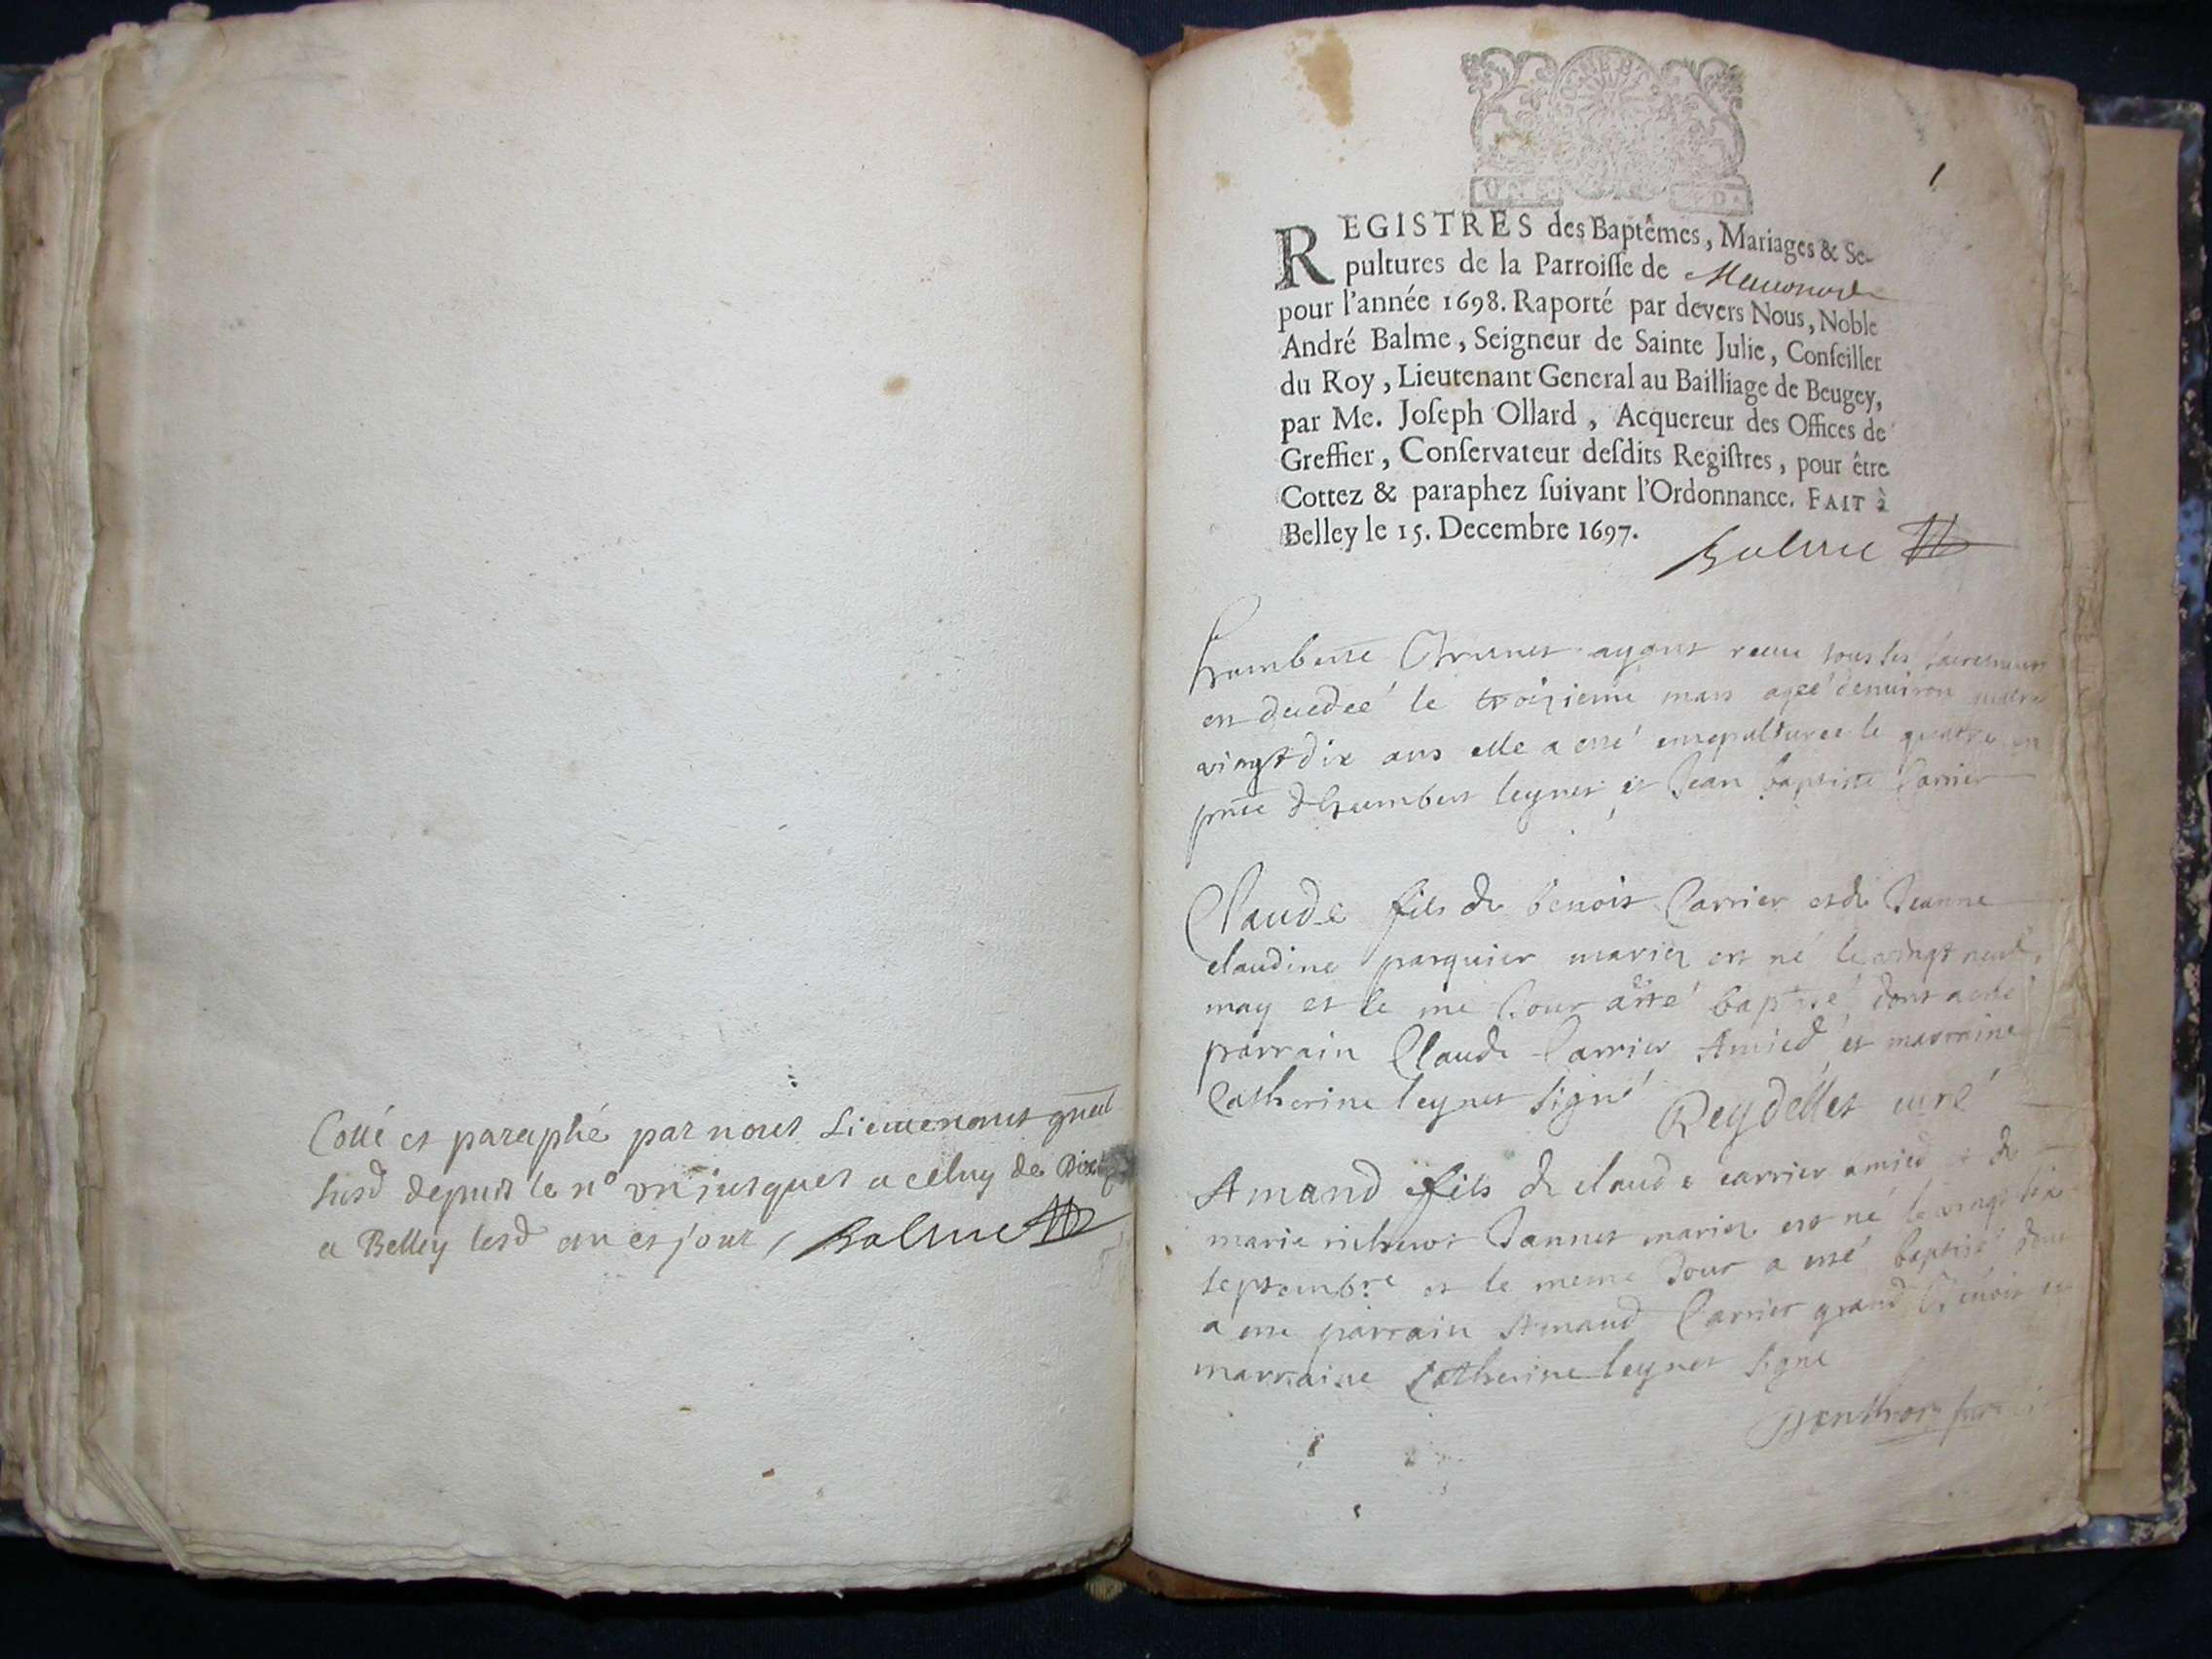 Cotté et paraphé par nous Lieutenant gnãl
susd depuis le n° un jusques a celuy de
a Belley lesd an et jour, Balme
1
REGISTRES des Baptêmes, Mariages & Se-
pultures de la Parroiſſe de
pour l'année 1698. Raporté par devers Nous, Noble
André Balme, Seigneur de Sainte Julie, Conſeiller
du Roy, Lieutenant General au Bailliage de Beugey,
par Me. Joſeph Ollard, Acquereur des Offices de
Greffier, Conſervateur deſdits Regiſtres, pour être
Cottez & paraphez ſuivant l'Ordonnance. FAIT à
Belley le 15. Decembre 1697.
Balme
ayant receu tous les sacremens
est decedeé le troizieme mars ageé denviron quatre
vingt dix ans elle a esté ensepulturee le quatre en
pnce d'humbert leynet et Jean baptiste Carrier
Claude fils de benoit Carrier et de Jeanne
claudine pasquier mariez est né le vingt neuf
may et le me Jour a esté baptisé dont a esté
parrain Claude Carrier Amied et marraine
Catherine leynet signé Reydellet curé
Amand fils de claude carrier amied et de
marie Jannet mariez est né le vingt six
septembre et le meme Jour a esté baptisé dont
a esté parrain Amand Carrier grand benoit et
marraine Catherine leynet signé